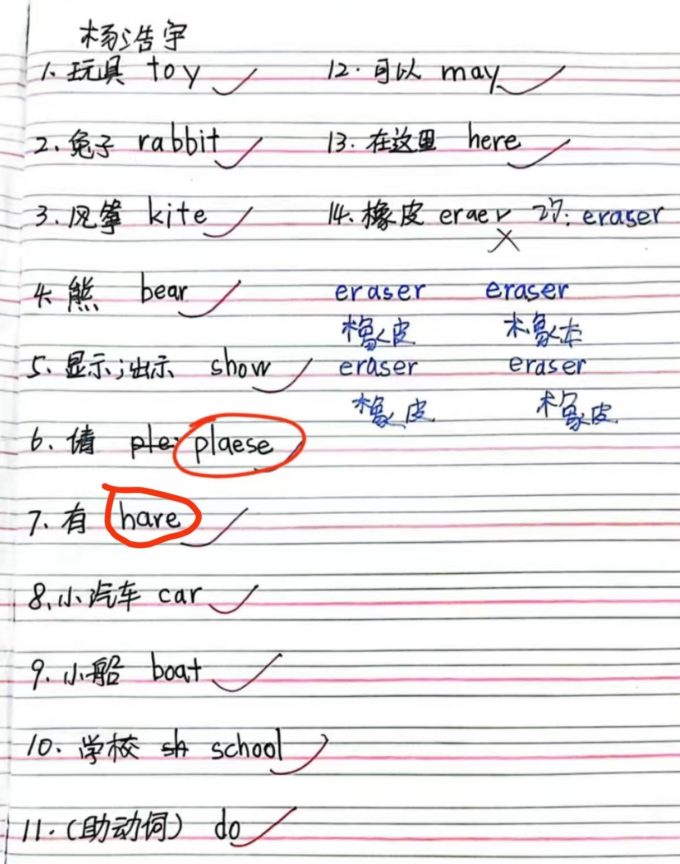 杨浩宇
1. 玩具 toy 12. 可以 may
2. 兔子 rabbit 13. 在这里 here
3. 风筝 kite 14. 橡皮 eraer 订: eraser
4. 熊 bear eraser eraser
橡皮 橡本
5. 显示;出示 show eraser eraser
橡皮 橡皮
6. 请 ple plaese
7. 有 hare
8. 小汽车 car
9. 小船 boat
10. 学校 sh school
11. (助动词) do